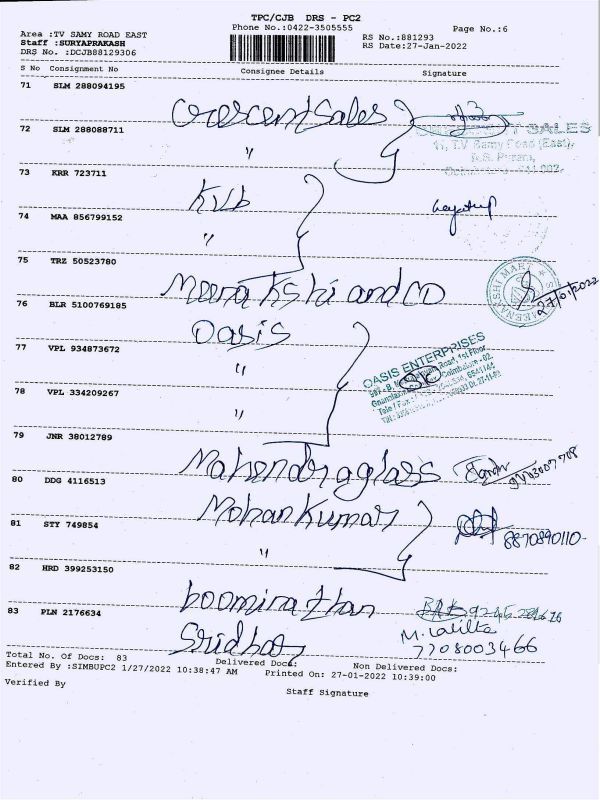 TPC/CJB DRS - PC2
Phone No.:0422-3505555
Page No.:6
Area :TV SAMY ROAD EAST
Staff :SURYAPRAKASH
DRS No. :DCJB88129306
RS No.:881293
RS Date:27-Jan-2022
S No Consignment No Consignee Details Signature
71 SLM 288094195
Crescent Sales
72 SLM 288088711
〃
SALES
11, T.V Samy Road (East),
R.S. Puram,
73 KRR 723711
KVb
74 MAA 856799152
〃
75 TRZ 50523780
Meenakshi and CO
27/01/2022
76 BLR 5100769185
Oasis
77 VPL 934873672
〃
OASIS ENTERPRISES
Road, 1st Floor
Coimbatore - 02.
78 VPL 334209267
〃
79 JNR 38012789
Mahendra glass
80 DDG 4116513
Mohan Kumar
81 STY 749854
〃
8870890110-
82 HRD 399253150
boominathan
83 PLN 2176634
Sridhar
M. Lalitha
7708003466
Total No. Of Docs: 83 Delivered Docs: Non Delivered Docs:
Entered By :SIMBUPC2 1/27/2022 10:38:47 AM Printed On: 27-01-2022 10:39:00
Verified By
Staff Signature